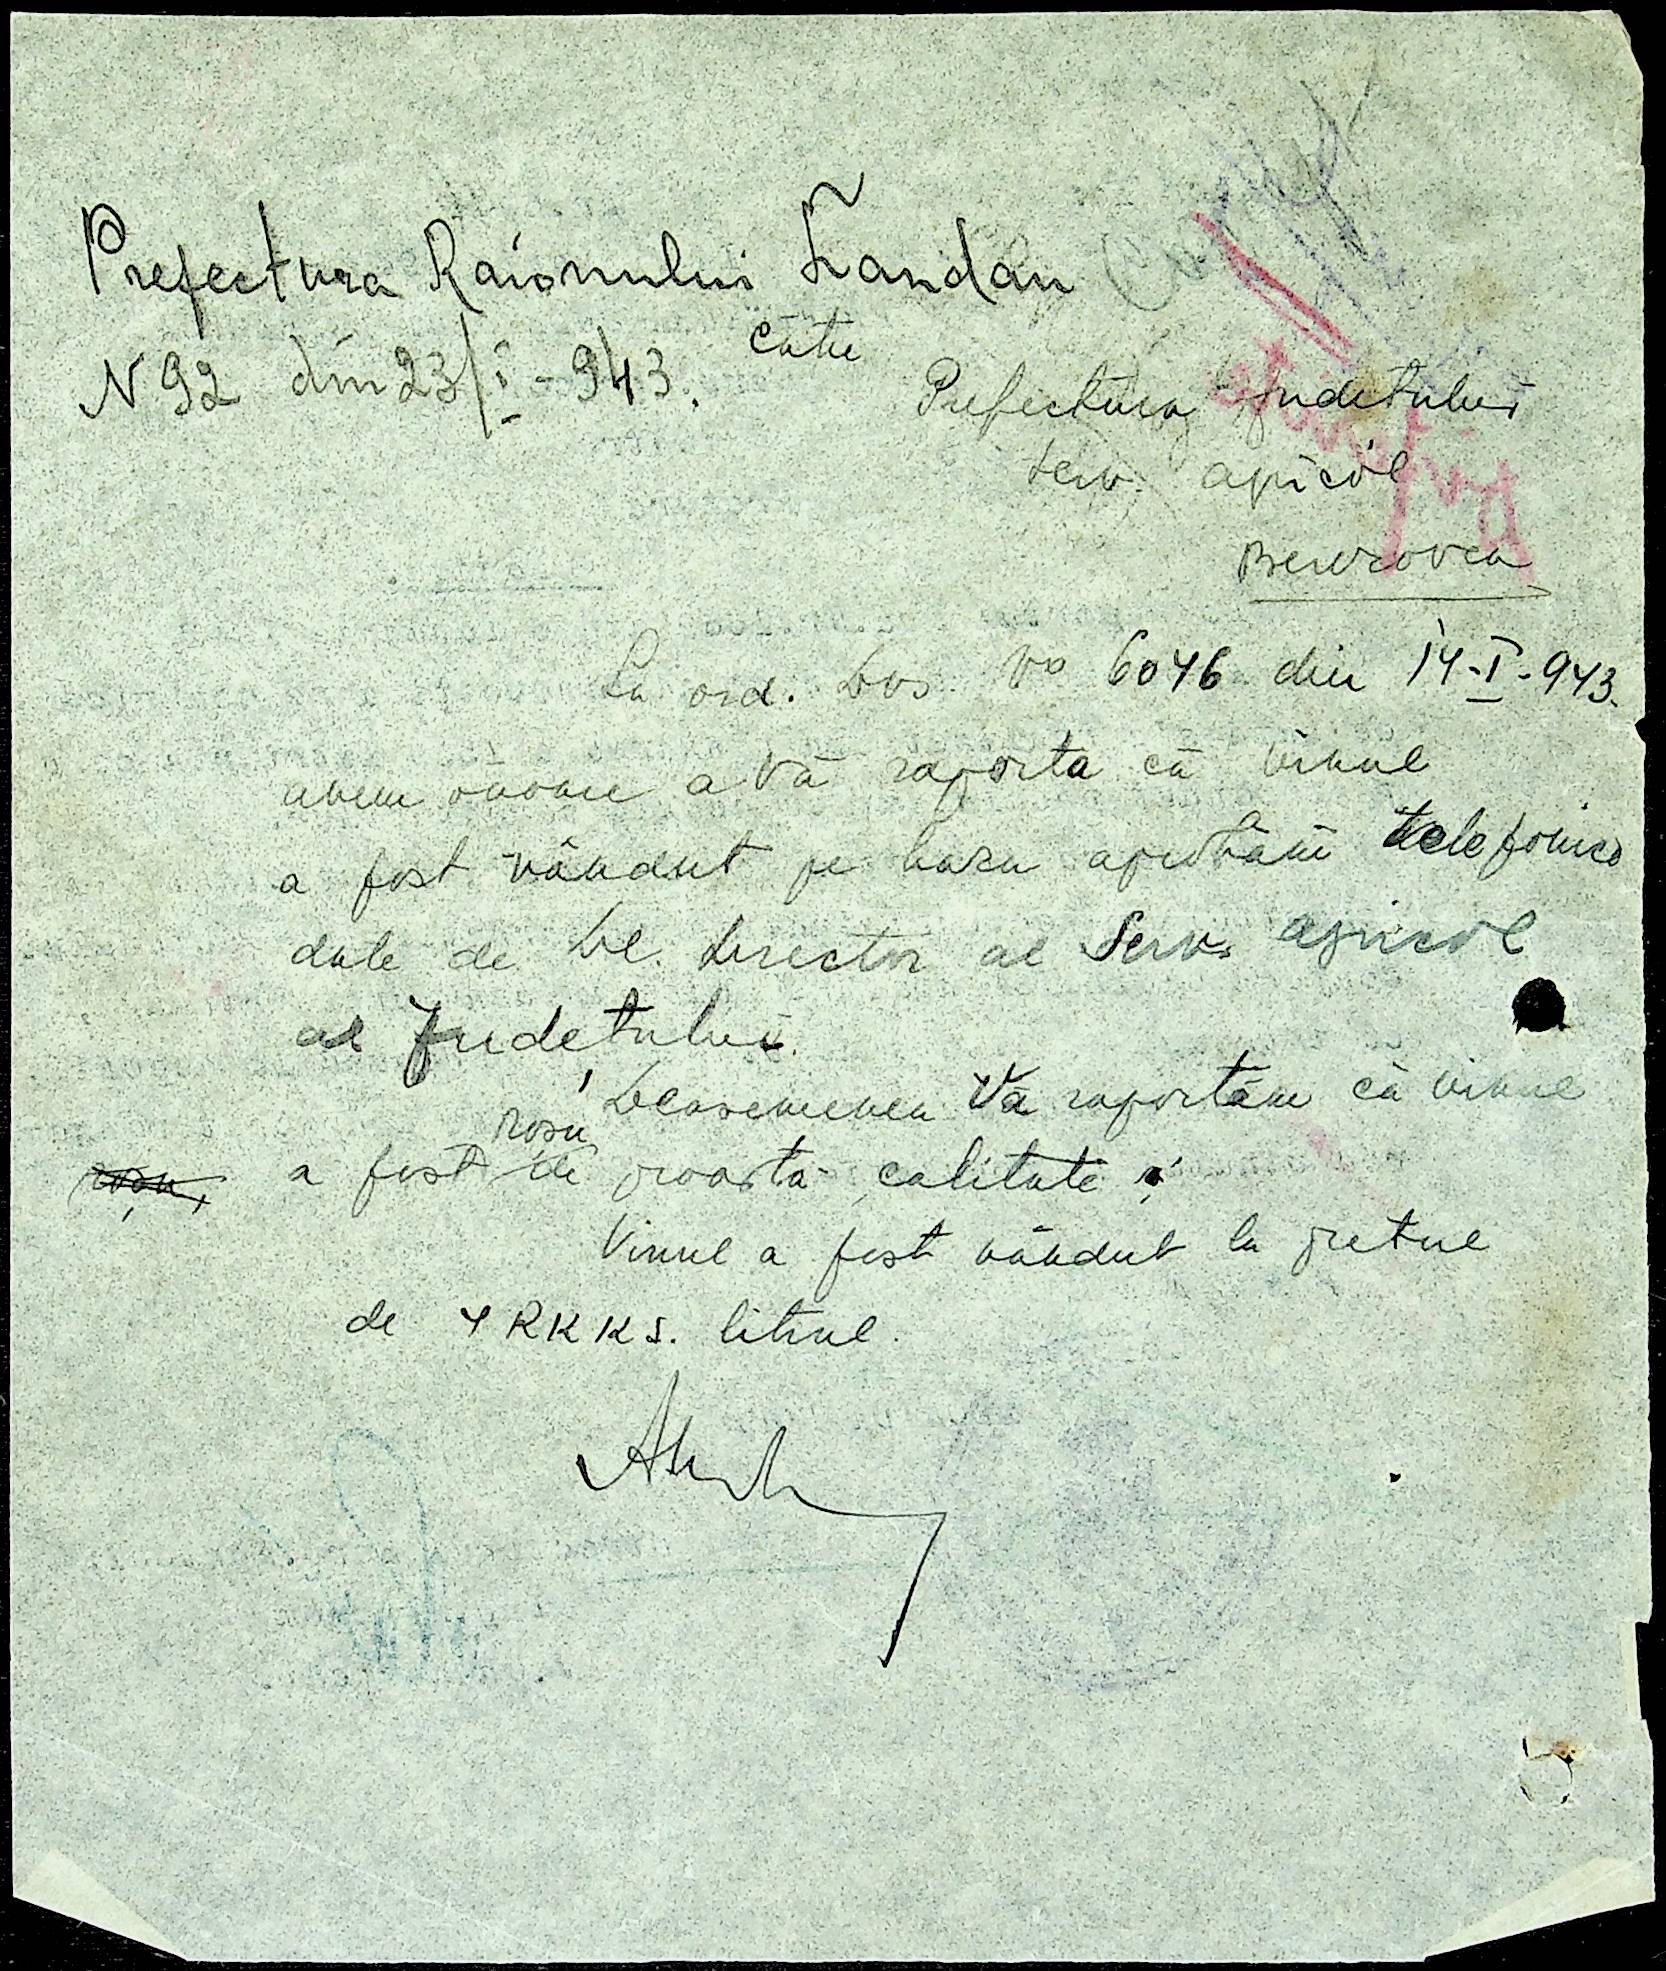 Prefectura Raionului Landau
N 92 din 23/I - 943.
către
Prefectura Judetului
Serv. agricol
Berezovca
La ord. Dvs. No 6046 din 14-I-943.
avem onoare a Vă raporta că vinul
a fost vândut pe baza aprobării telefonice
date de Dl. Director al Serv. agricol
al Județului.
Deasemenea Vă raportăm că vinul
roșu
a fost de proastă calitate
Vinul a fost vândut la prețul
de 4 RKKS. litrul.